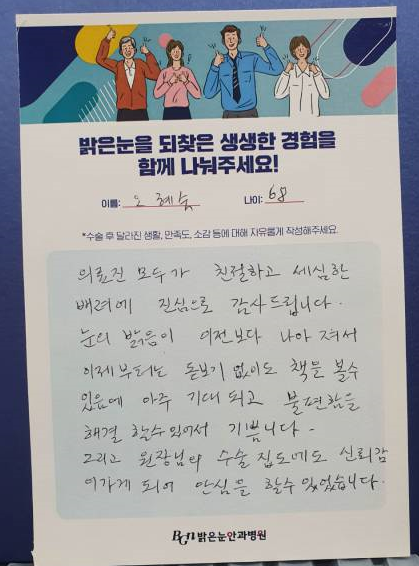 밝은눈을 되찾은 생생한 경험을
함께 나눠주세요!
이름: 오혜숙 나이: 68
*수술 후 달라진 생활, 만족도, 소감 등에 대해 자유롭게 작성해주세요.
의료진 모두가 친절하고 세심한
배려에 진심으로 감사드립니다.
눈의 밝음이 이전보다 나아져서
이제부터는 돋보기 없이도 책을 볼수
있음에 아주 기대되고 불편함을
해결 할수 있어서 기쁩니다.
그리고 원장님의 수술 집도에도 신뢰감
이가게 되어 안심을 할수 있었습니다.
BGN 밝은눈안과병원